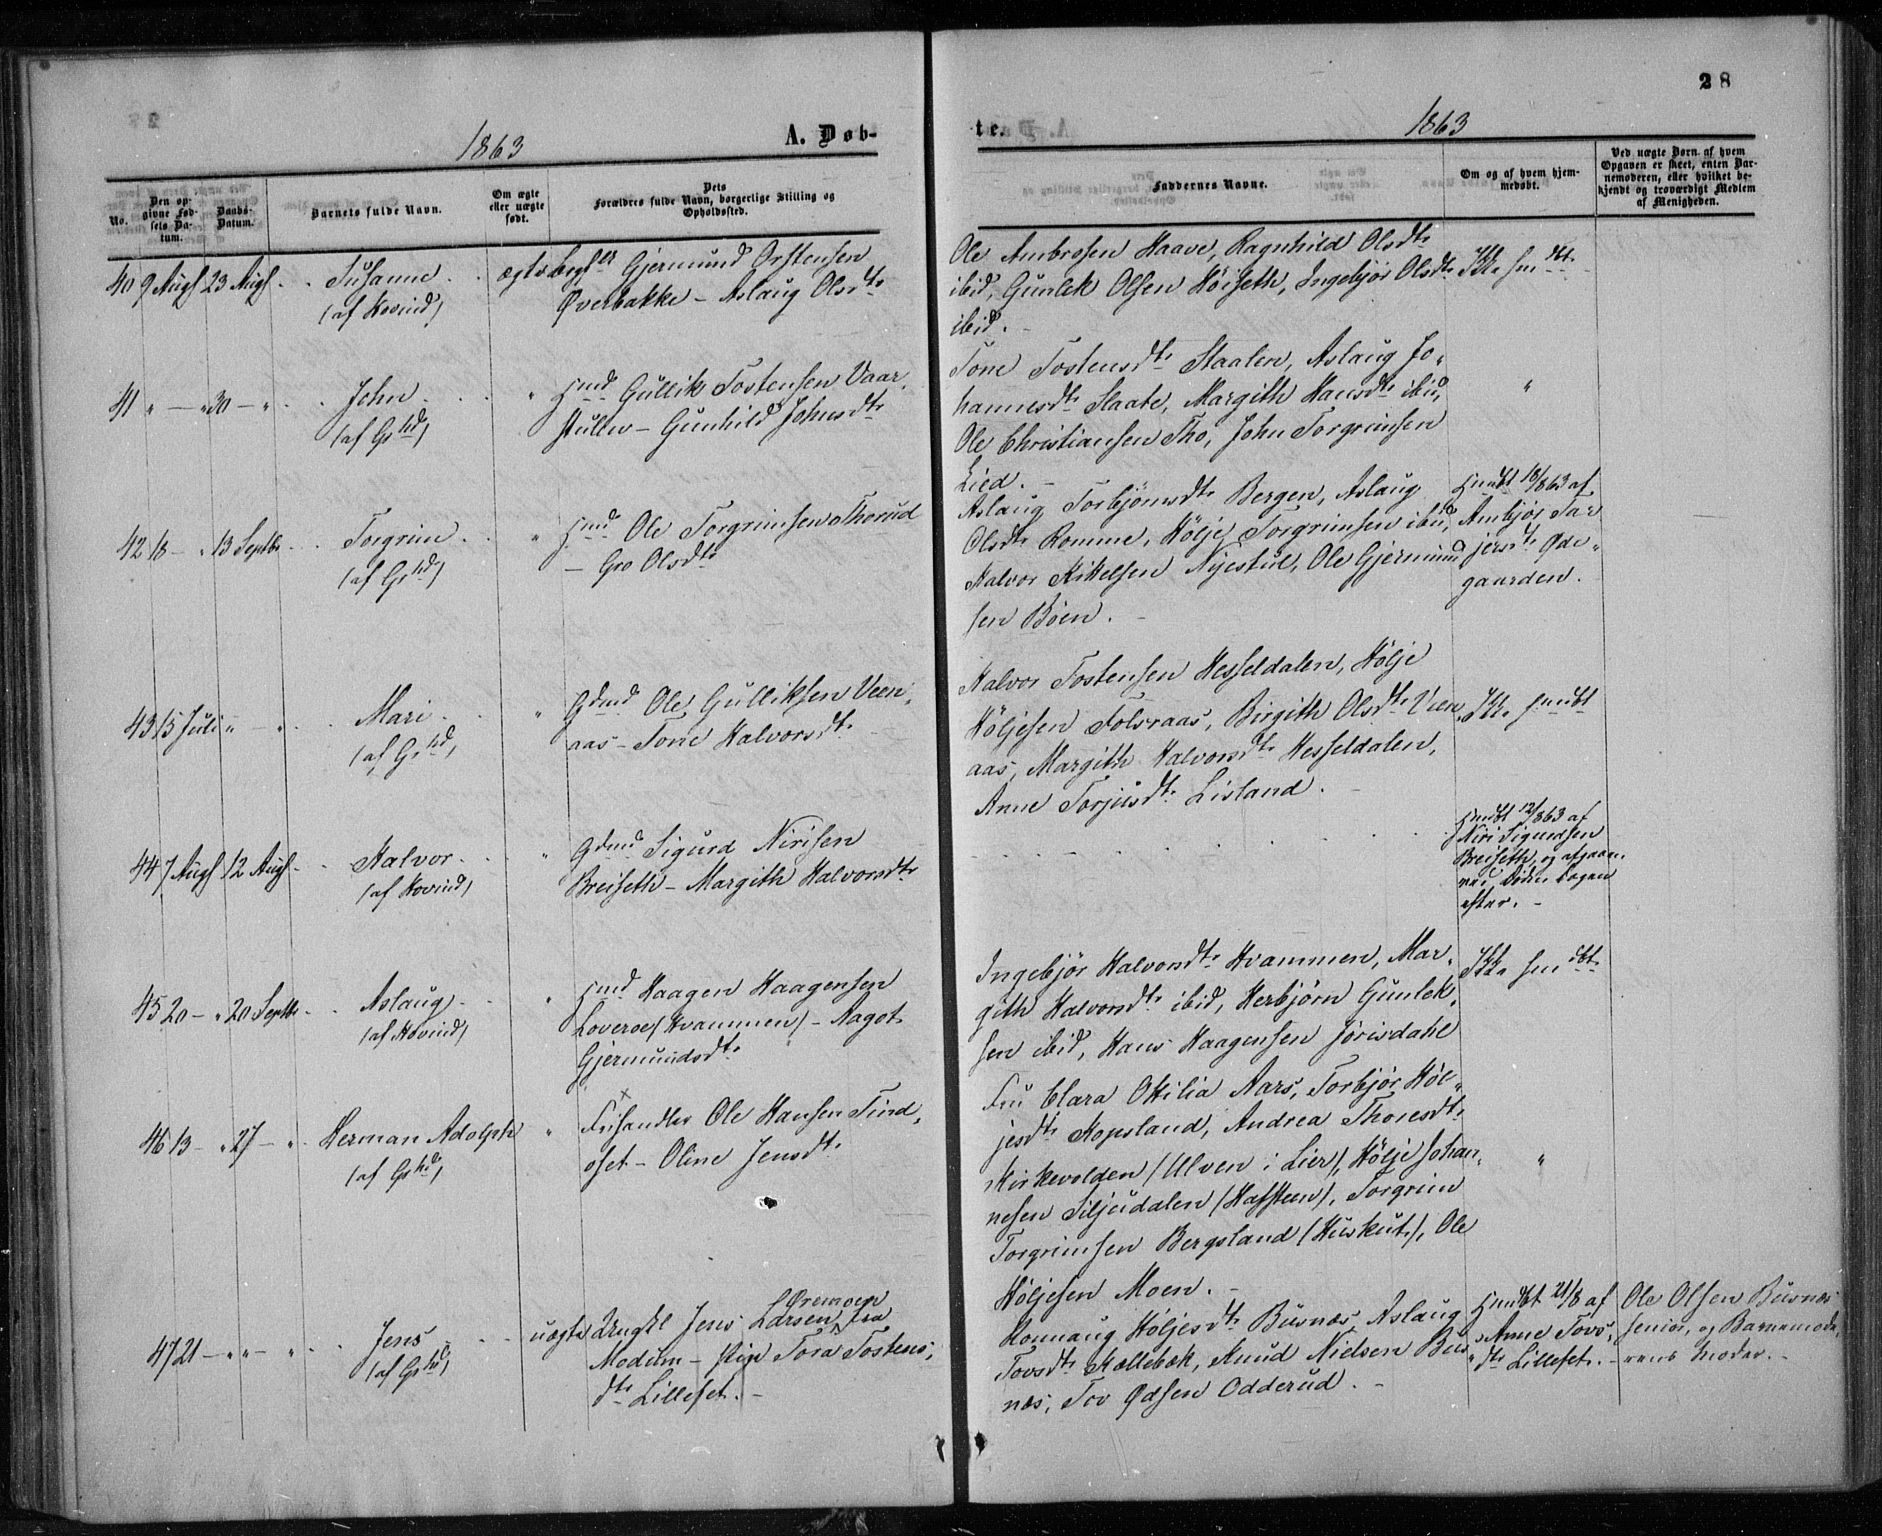 28
1863
A. Døb-
te.
1863
No.
Den op-
givne Fød-
sels Da-
tum.
Daabs-
Datum.
Barnets fulde Navn.
Om ægte
eller uægte
født.
Dets
Forældres fulde Navn, borgerlige Stilling og
Opholdssted.
Faddernes Navne.
Om og af hvem hjem-
medøbt.
Ved uægte Børn af hvem
Opgaven er skeet, enten Bar-
nemoderen, eller hvilket be-
kjendt og troværdigt Medlem
af Menigheden.
40 9 Augs 23 Augs - . Susanne . . ægte
(af Hovind)
Gjermund Orstensen
Øverbakke - Aslaug Olsdtr
Ole Ambrosen Haave, Ragnhild Olsdtr
ibid, Gunlek Olsen Høiseth, Ingebjør Olsdtr
ibid. -
Ikke hmdbt
41 " - " 30 - " . . John . . . "
(af Grhd)
Hmd Gullik Tostensen Vaar-
stullen - Gunhild Johnsdtr
Tone Tostensdtr Staalen, Aslaug Jo-
hannesdtr Slaate, Margith Hansdtr ibid,
Ole Christiansen Tho, John Torgrimsen
Lied. -
"
42 18 - " 13 Septbr - . Torgrim . . "
(af Grhd)
Hmd Ole Torgrimsen Thorud
- Gro Olsdtr
Aslaug Torbjørnsdtr Bergen, Aslaug
Olsdtr Romme, Hølje Torgrimsen ibid,
Halvor Kittelsen Nyestul, Ole Gjermund
sen Böen. -
Hmdbt 18/8 63 af
Ambjør Tar-
jersdtr Øde-
gaarden.
43 15 Juli " - " . . Mari . . "
(af Grhd)
Gdmd Ole Gulliksen Veen-
aas - Tone Halvorsdtr
Halvor Tostensen Hesseldalen, Hølje
Høljesen Folsraas, Birgith Olsdtr Veen
aas, Margith Halvorsdtr Hesseldalen,
Anne Torjusdtr Lisland. -
Ikke hmdbt
44 7 Augs 12 Augs - . Halvor . . "
(af Hovind)
Gdmd Sigurd Nirisen
Breiseth - Margith Halvorsdtr
Hmdbt 12/8 63 af
Niri Sigurdsen
Breiseth, og afgaaen
ved Døden Dagen
efter. -
45 20 - " 20 Septbr - . Aslaug . . "
(af Hovind)
Hmd Haagen Haagensen
Loveroe (Kvammen) - Aagot
Gjermundsdtr
Ingebjør Halvorsdtr Kvammen, Mar-
gith Halvorsdtr ibid, Herbjørn Gunlek-
sen ibid, Hans Haagensen Jørisdahl
Ikke hmdbt
46 13 - " 27 - " . Herman Adolph "
(af Grhd)
Frihandler Ole Hansen Tind-
oset - Oline Jensdtr
Fru Clara Otilia Aars, Torbjør Høl-
jesdtr Kopsland, Andrea Thoresdtr
Kirkevolden (Ulven i Lier), Hølje Johan-
nesen Siljudalen (Hafsteen), Torgrim
Torgrimsen Bergsland (Huskut), Ole
Høljesen Moen. -
"
47 21 - " " - " . . Jens . . . uægte
(af Grhd)
Ungkl Jens Larsen Øremoen fra
Modum - Pige Tora Tostens-
dtr Lilleset. -
Ronnaug Høljesdtr Busnæs, Aslaug
Tovsdtr Kallebæk, Knud Nielsen Bus
næs, Tov Ødsen Odderud. -
Hmdbt 21/8 af
Anne Tovs-
dtr Lilleset. -
Ole Olsen Busnæs
senior, og Barnemode-
rens Moder. -